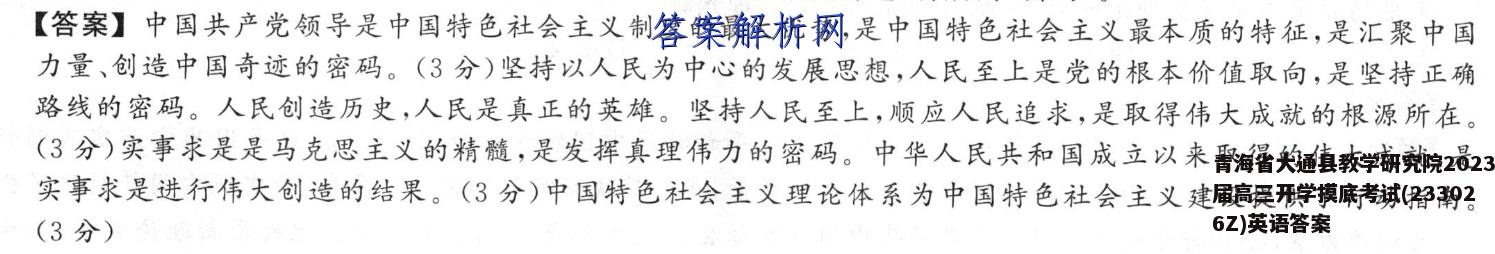 【答案】中国共产党领导是中国特色社会主义制度的最大优势,是中国特色社会主义最本质的特征,是汇聚中国
力量、创造中国奇迹的密码。(3分)坚持以人民为中心的发展思想,人民至上是党的根本价值取向,是坚持正确
路线的密码。人民创造历史,人民是真正的英雄。坚持人民至上,顺应人民追求,是取得伟大成就的根源所在。
(3分)实事求是是马克思主义的精髓,是发挥真理伟力的密码。中华人民共和国成立以来取得的伟大成就,是
实事求是进行伟大创造的结果。(3分)中国特色社会主义理论体系为中国特色社会主义建设提供了行动指南。
(3分)
答案解析网
青海省大通县教学研究院2023
届高三开学摸底考试(23302
6Z)英语答案